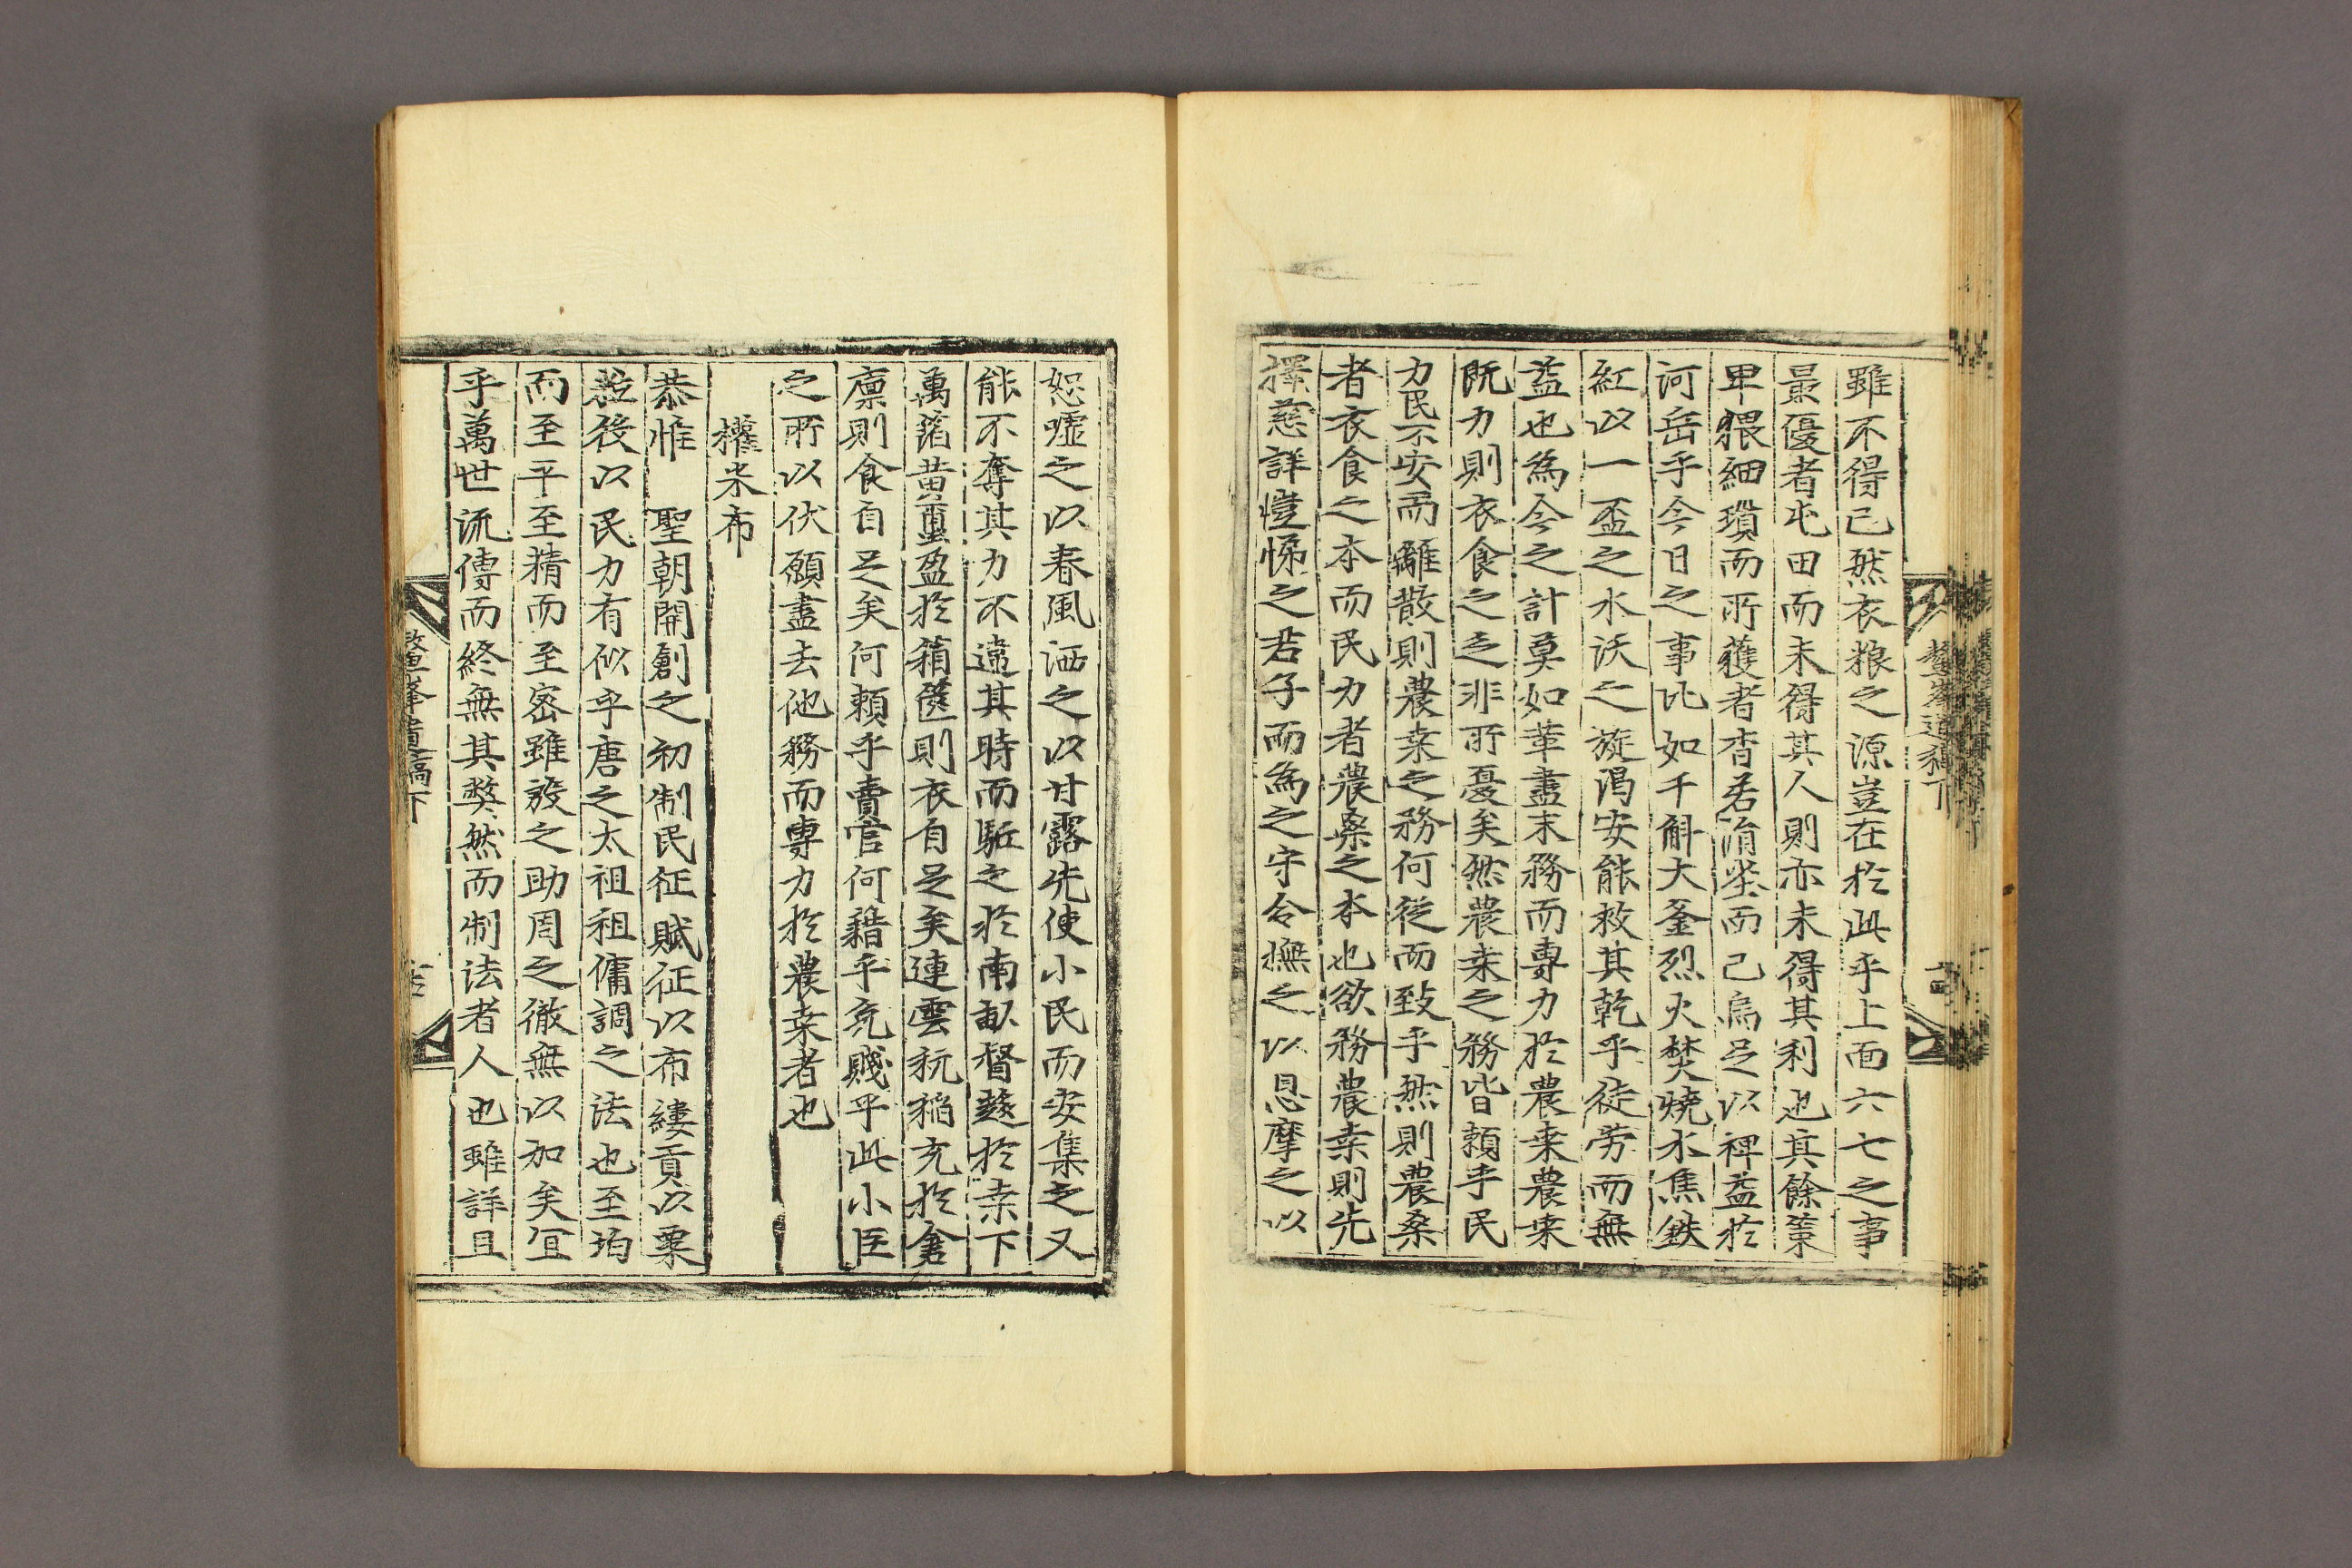 雖不得已然衣粮之源豈在於此乎上面六七之事
最優者屯田而未得其人則亦未得其利也其餘策
卑猥細瑣而所獲者杳若涓埃而已烏足以裨益於
河岳乎今日之事比如千斛大釜烈火焚燒水焦鉄
紅以一盃之水沃之旋渴安能救其乾乎徒勞而無
益也爲今之計莫如革盡末務而專力於農桒農桒
既力則衣食之乏非所憂矣然農桒之務皆賴乎民
力民不安而離散則農桒之務何從而致乎然則農桑
者衣食之本而民力者農桑之本也欲務農桒則先
擇慈詳愷悌之君子而爲之守令撫之以恩摩之以
恕噓之以春風洒之以甘露先使小民而安集之又
能不奪其力不違其時而駈之於南畝督趍於桒下
萬箔黄蠒盈於箱篋則衣自足矣連雲秔稲充於倉
廪則食自足矣何賴乎賣官何藉乎免賤乎此小臣
之所以伏願盡去他務而専力於農桒者也
權米布
恭惟 聖朝開創之初制民征賦征以布縷貢以粟
粒役以民力有似乎唐之太祖租傭調之法也至均
而至平至精而至密雖殷之助周之徹無以加矣宜
乎萬世流傳而終無其弊然而制法者人也雖詳且
鰲峯遺稿下